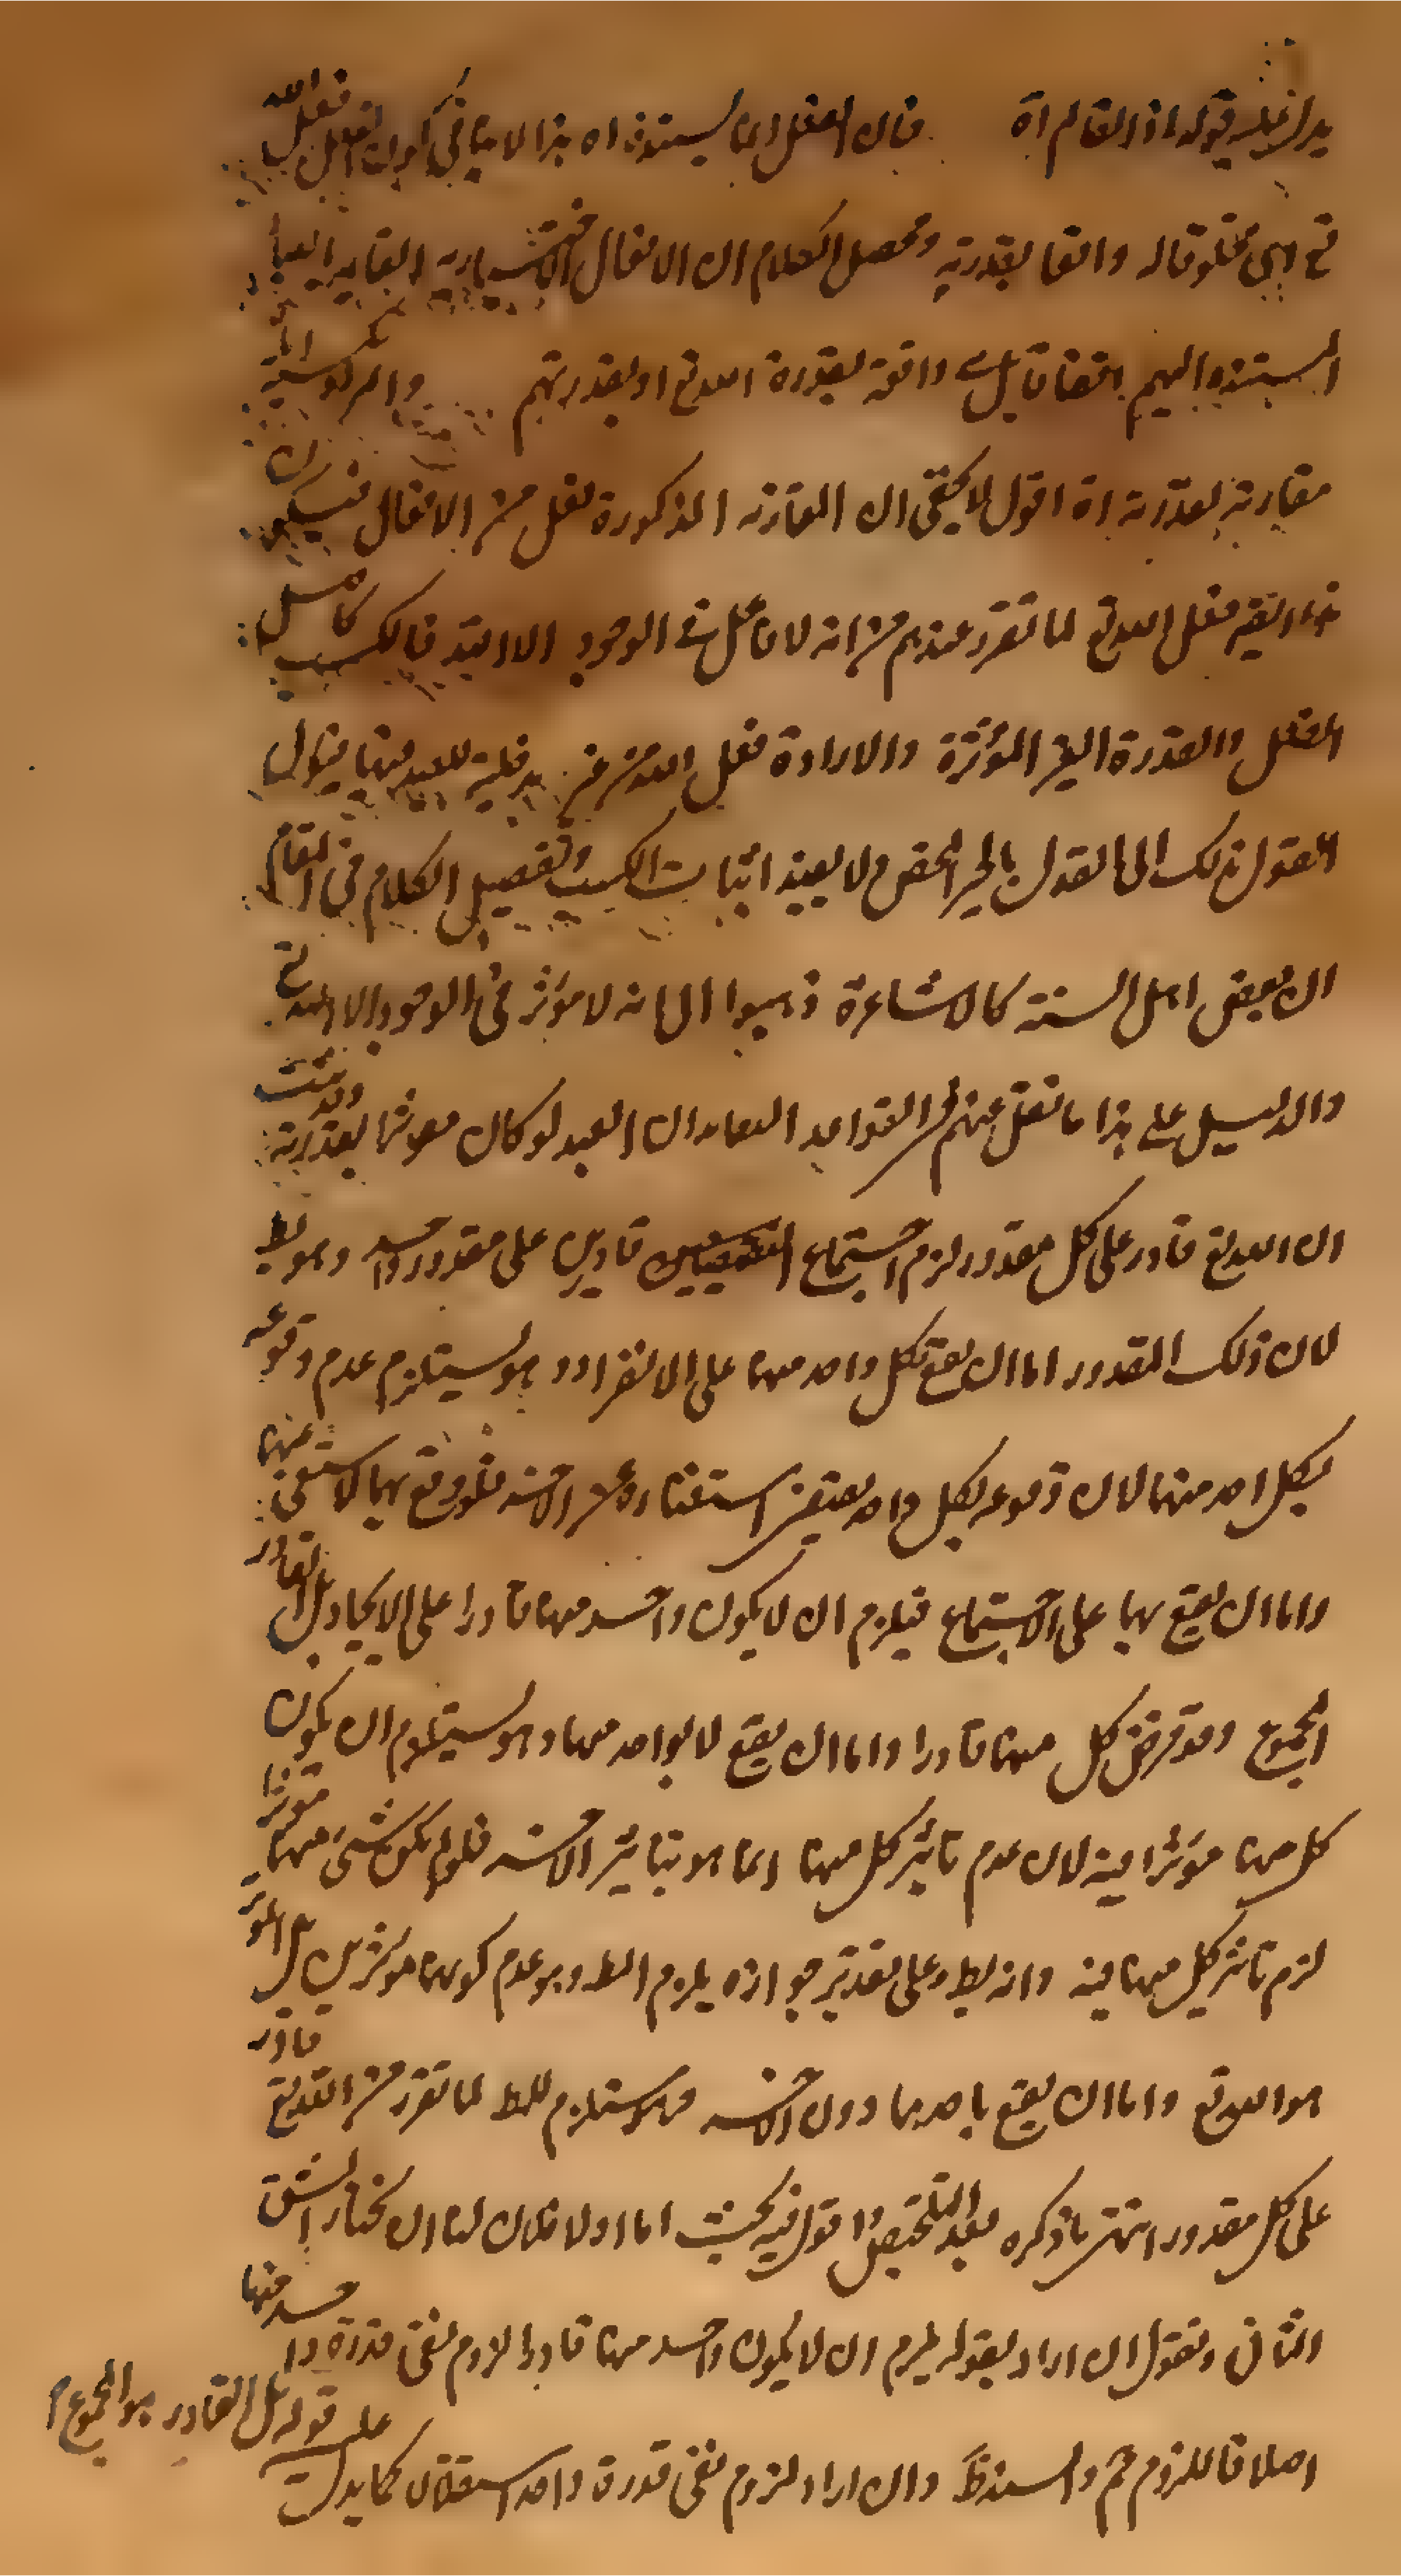 يدل عليه قوله اذ القائم اه فان الفعل انما يستند اه هذا لا ينافي كون الفعل فعل الله
تع اهى مخلوقاله واقعا بقدرته ومحصل الكلام ان الافعال الاختيارية القايمة بالعباد
المستندة اليهم اتفاقا هل واقعة بقدرة الله تع او بقدرتهم والمراد بكسبه اياه
مقارنة لقدرته اه اقول لا يخفى ان المقارنة المذكورة فعل من الافعال فيكون
هذا ايضا فعل الله تع لما تقرر عندهم من انه لا فاعل في الوجود الا الله فالكسب كاصل
الفعل والقدرة الغير المؤثرة والارادة فعل الله من غير مدخلية للعبد فيها فيؤل
القول بذلك الى القول بالجبر المحض ولا يفيد اثبات الكسب وتفصيل الكلام في المقام
ان بعض اهل السنة كالاشاعرة ذهبوا الى انه لا مؤثر في الوجود الا الله تع
والدليل على هذا ما نقل عنهم شر القواعد ان العبد لو كان مؤثرا بقدرته وقد ثبت
ان الله تع قادر على كل مقدور لزم اجتماع قادرين على مقدور واحد وهو بط
لان ذلك المقدور اما ان يقع بكل واحد منهما على الانفراد وهو يستلزم عدم وقوعه
بكل احد منهما لان وقوعه بكل واحد يقتضي استغناءه عن الاخر فلو وقع بهما لاستغنى عنهما
واما ان يقع بهما على الاجتماع فيلزم ان لا يكون واحد منهما قادرا على الايجاد بل القادر
المجموع وقد فرض كل منهما قادرا واما ان يقع لا بواحد منهما وهو يستلزم ان يكون
كل منهما مؤثرا فيه لان عدم تاثير كل منهما انما هو بتاثير الاخر فلو لم يكن شئ منهما مؤثرا
لزم تاثير كل منهما فيه وانه بط وعلى تقدير جوازه يلزم المط وهو عدم كونهما مؤثرين بل المؤثر
هو الله تع واما ان يقع باحدهما دون الاخر فهو مستلزم للمط لما تقرر من ان الله تع قادر
على كل مقدور انتهى ما ذكره بعد التلخيص واقول فيه بحث اما اولا فلان لنا ان نختار الشق
الثاني ونقول ان اراد بقوله يلزم ان لا يكون واحد منهما قادرا لزوم نفي قدرة واحد منهما
اصلا فاللزوم مم والسند ظ وان اراد لزوم نفي قدرة واحد استقلالا كما يدل عليه قوله بل القادر هو المجموع